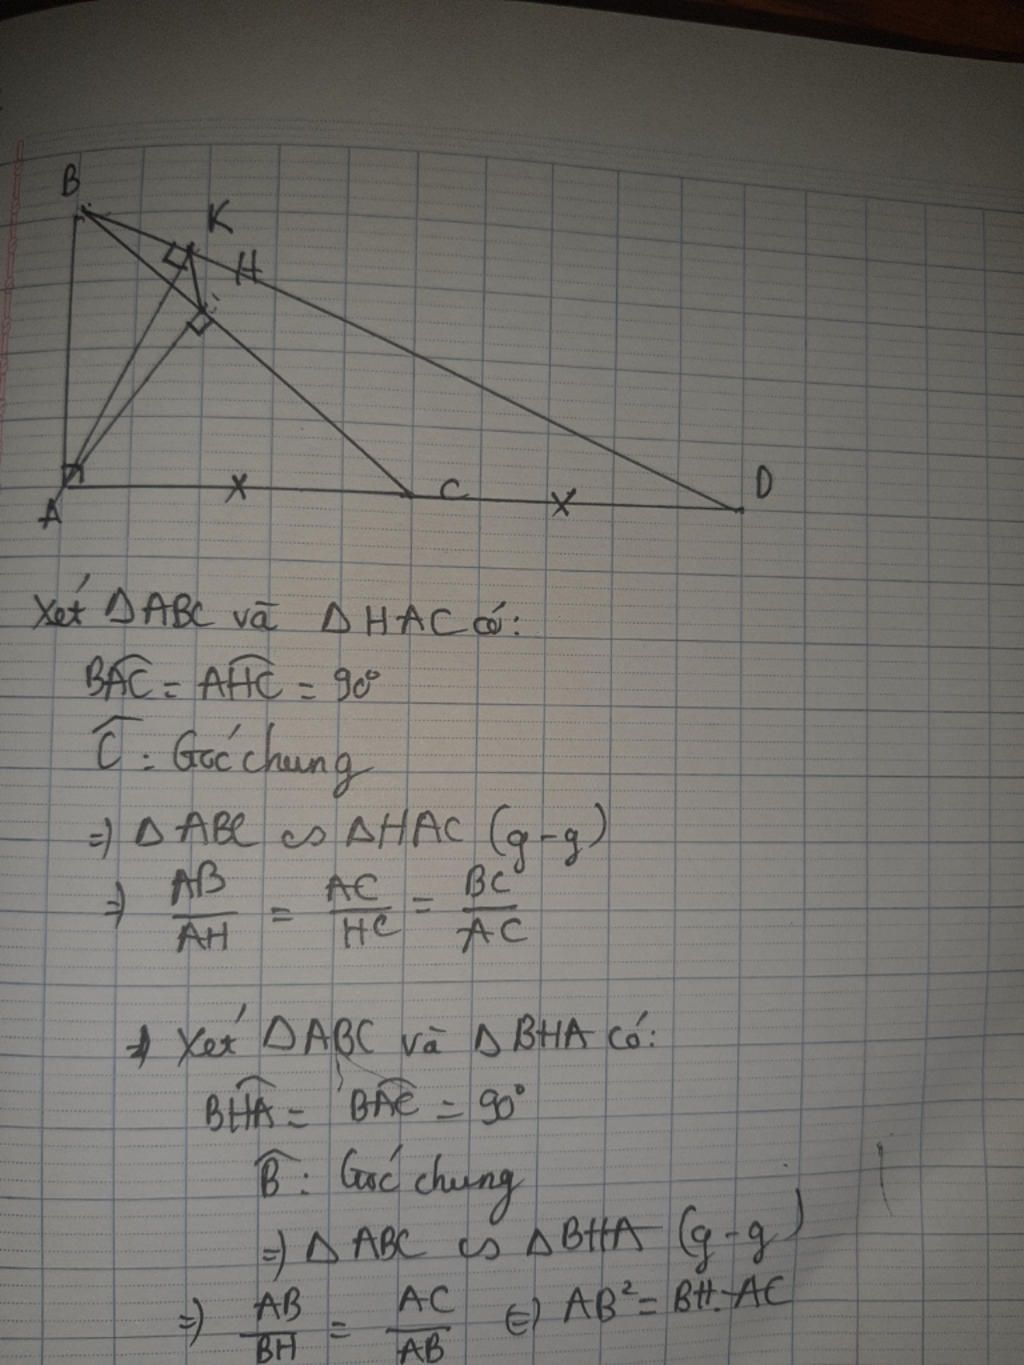 B
K
H
A
C
D
Xét ΔABC và ΔHAC có:
BAC = AHC = 90°
C : Góc chung
=> ΔABC ∽ ΔHAC (g-g)
=> AB/AH = AC/HC = BC/AC
Xét ΔABC và ΔBHA có:
BHA = BAC = 90°
B : Góc chung
=> ΔABC ∽ ΔBHA (g-g)
=> AB/BH = AC/AB <=> AB² = BH.AC